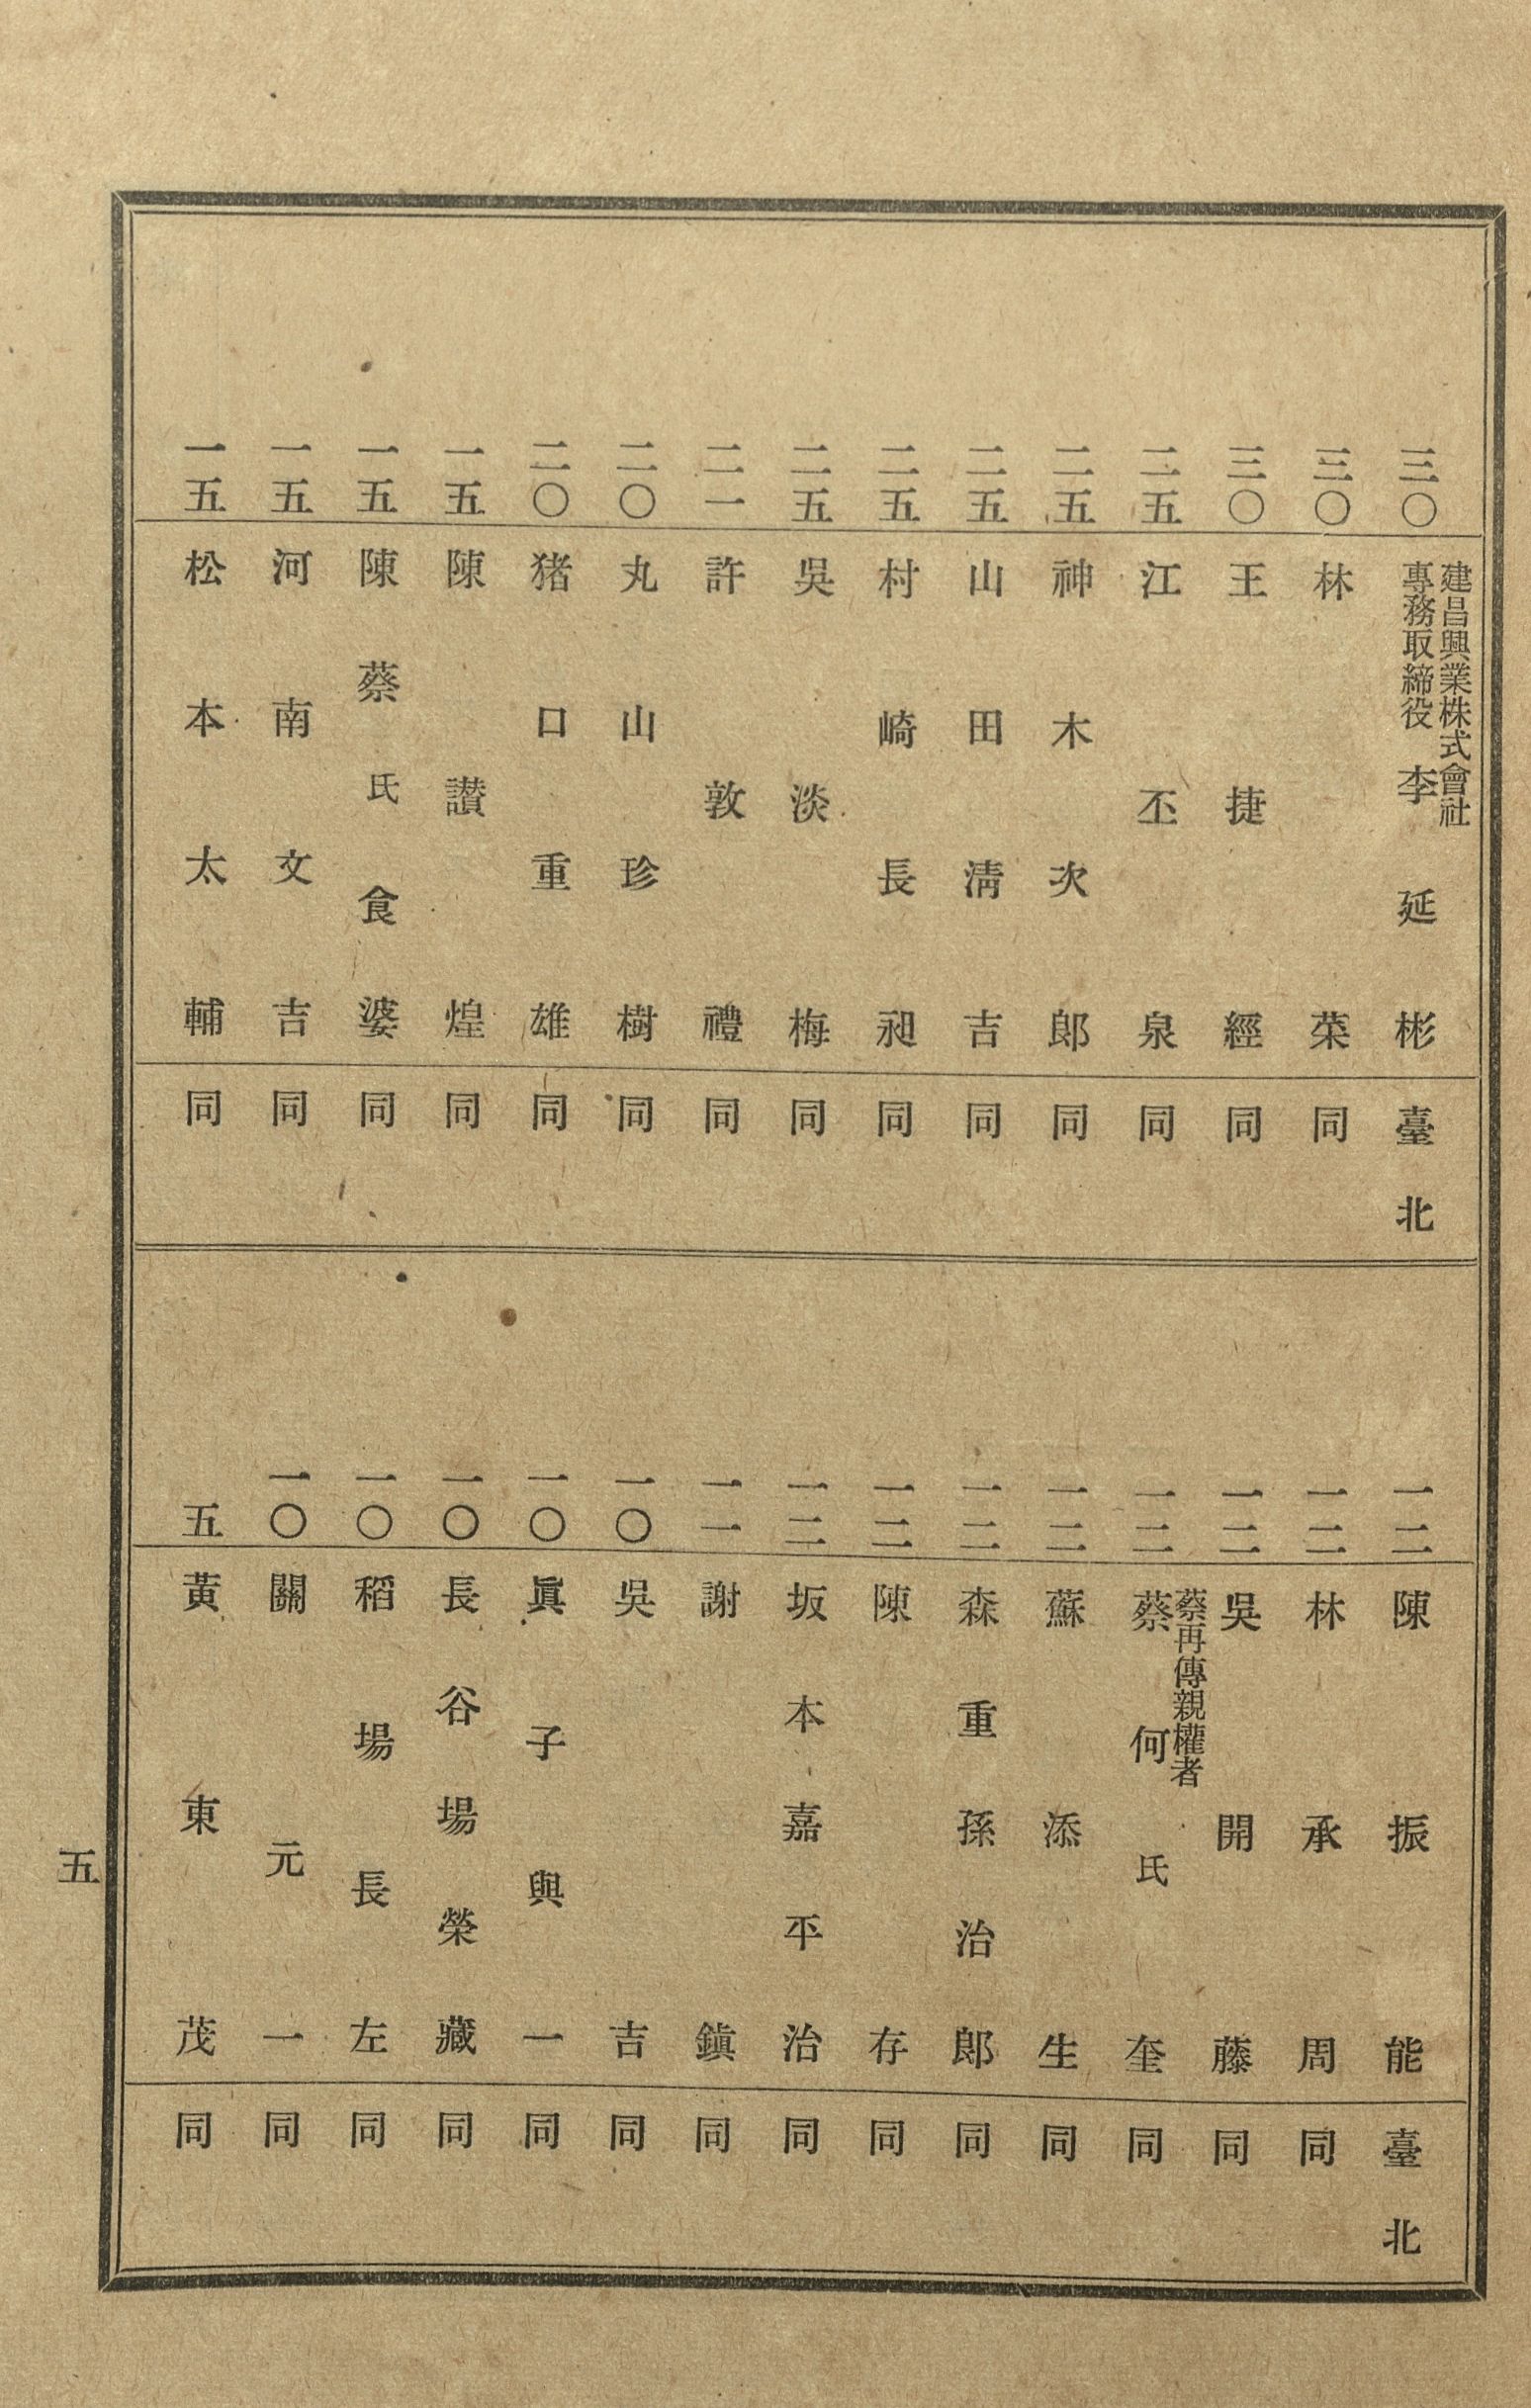 三〇 建昌興業株式會社專務取締役 李延彬 臺北
三〇 林榮 同
三〇 王捷經 同
二五 江丕泉 同
二五 神木次郎 同
二五 山田淸吉 同
二五 村崎長昶 同
二五 吳淡梅 同
二一 許敦禮 同
二〇 丸山珍樹 同
二〇 猪口重雄 同
一五 陳讃煌 同
一五 陳蔡氏食婆 同
一五 河南文吉 同
一五 松本太輔 同
一二 陳振能 臺北
一二 林承周 同
一二 吳開藤 同
一二 蔡再傳親權者 蔡何氏奎 同
一二 蘇添生 同
一二 森重孫治郎 同
一二 陳存 同
一二 坂本嘉平治 同
一一 謝鎭 同
一〇 吳吉 同
一〇 眞子與一 同
一〇 長谷場榮藏 同
一〇 稻場長左 同
一〇 關元一 同
五 黃東茂 同
五